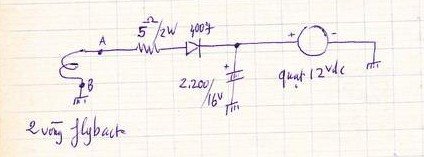 5Ω/2W
4007
A
+ -
+
2.200/16V
quạt 12vdc
B
2 vòng flyback